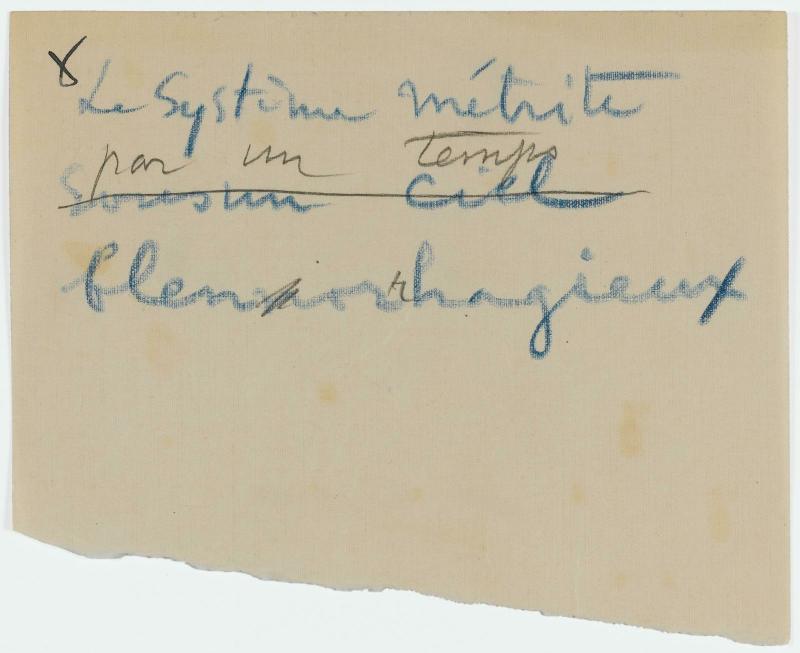 8
Le Système métrite
par un temps
Sous un Ciel
blennorrhagieux